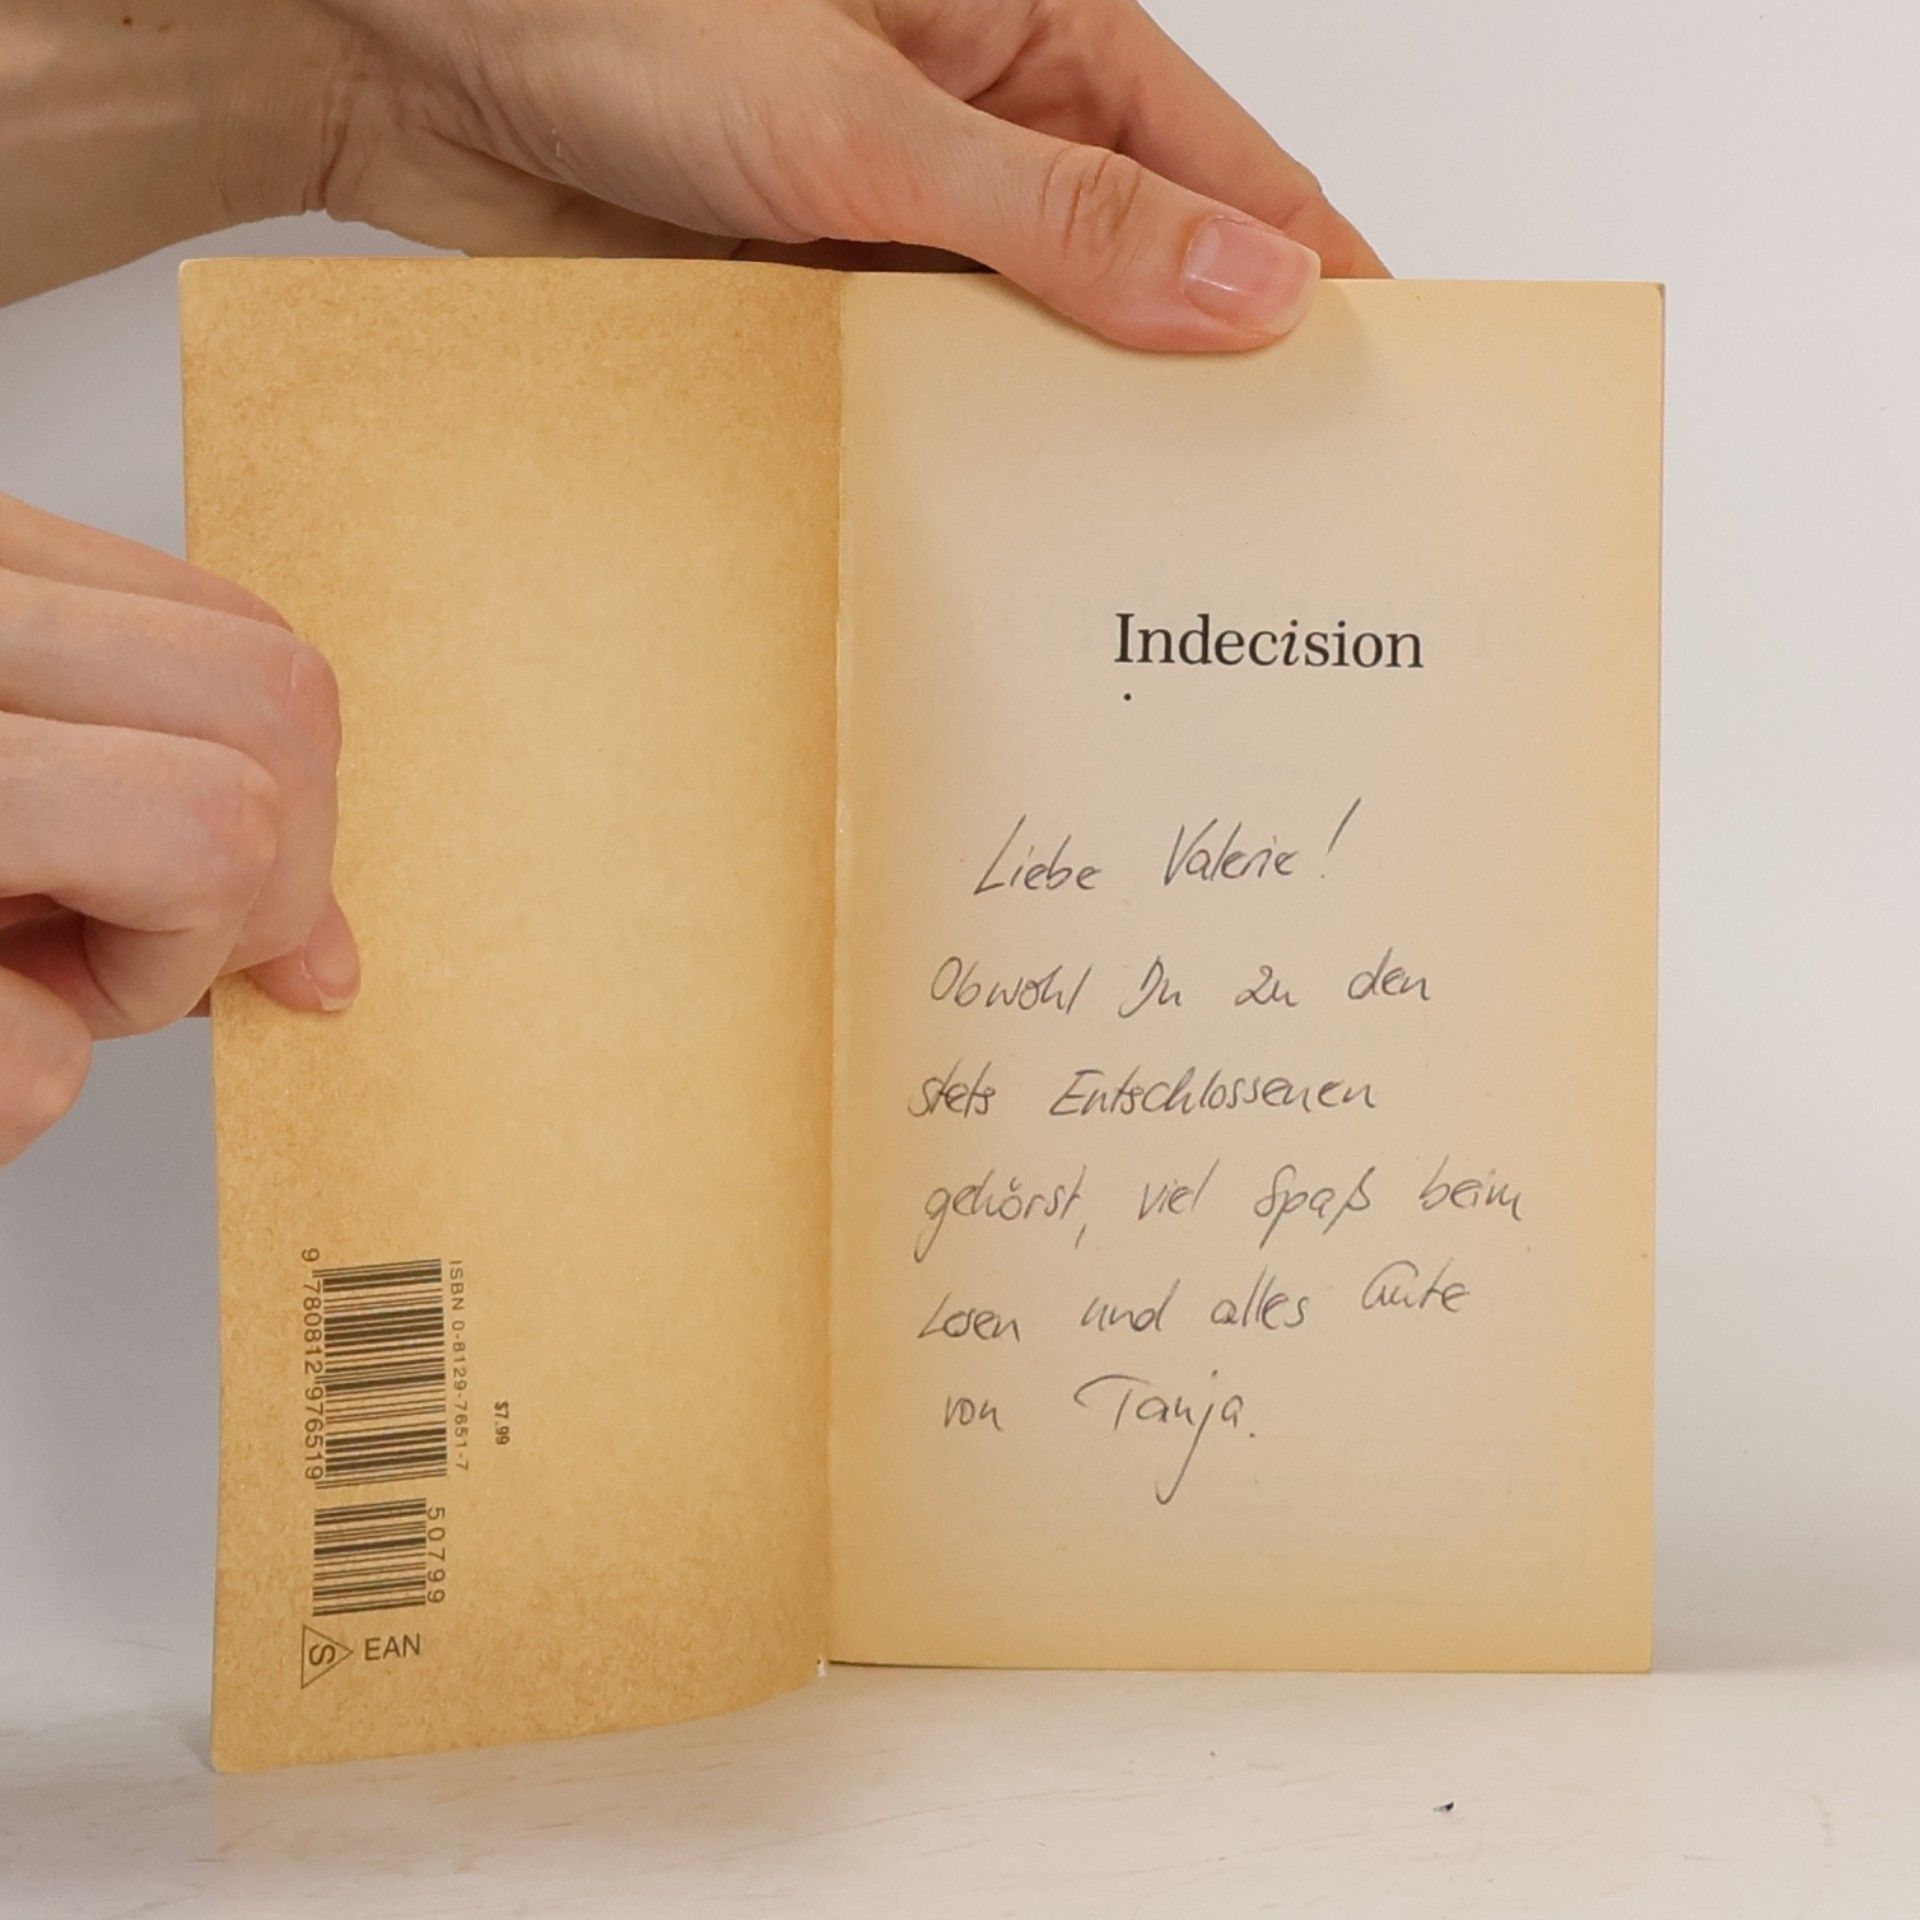 ISBN 0-8129-7651-7
9 780812 976519
$7.99
50799
S EAN
Indecision
Liebe Valerie!
Obwohl Du zu den
stets Entschlossenen
gehörst, viel Spaß beim
Lesen und alles Gute
von Tanja.